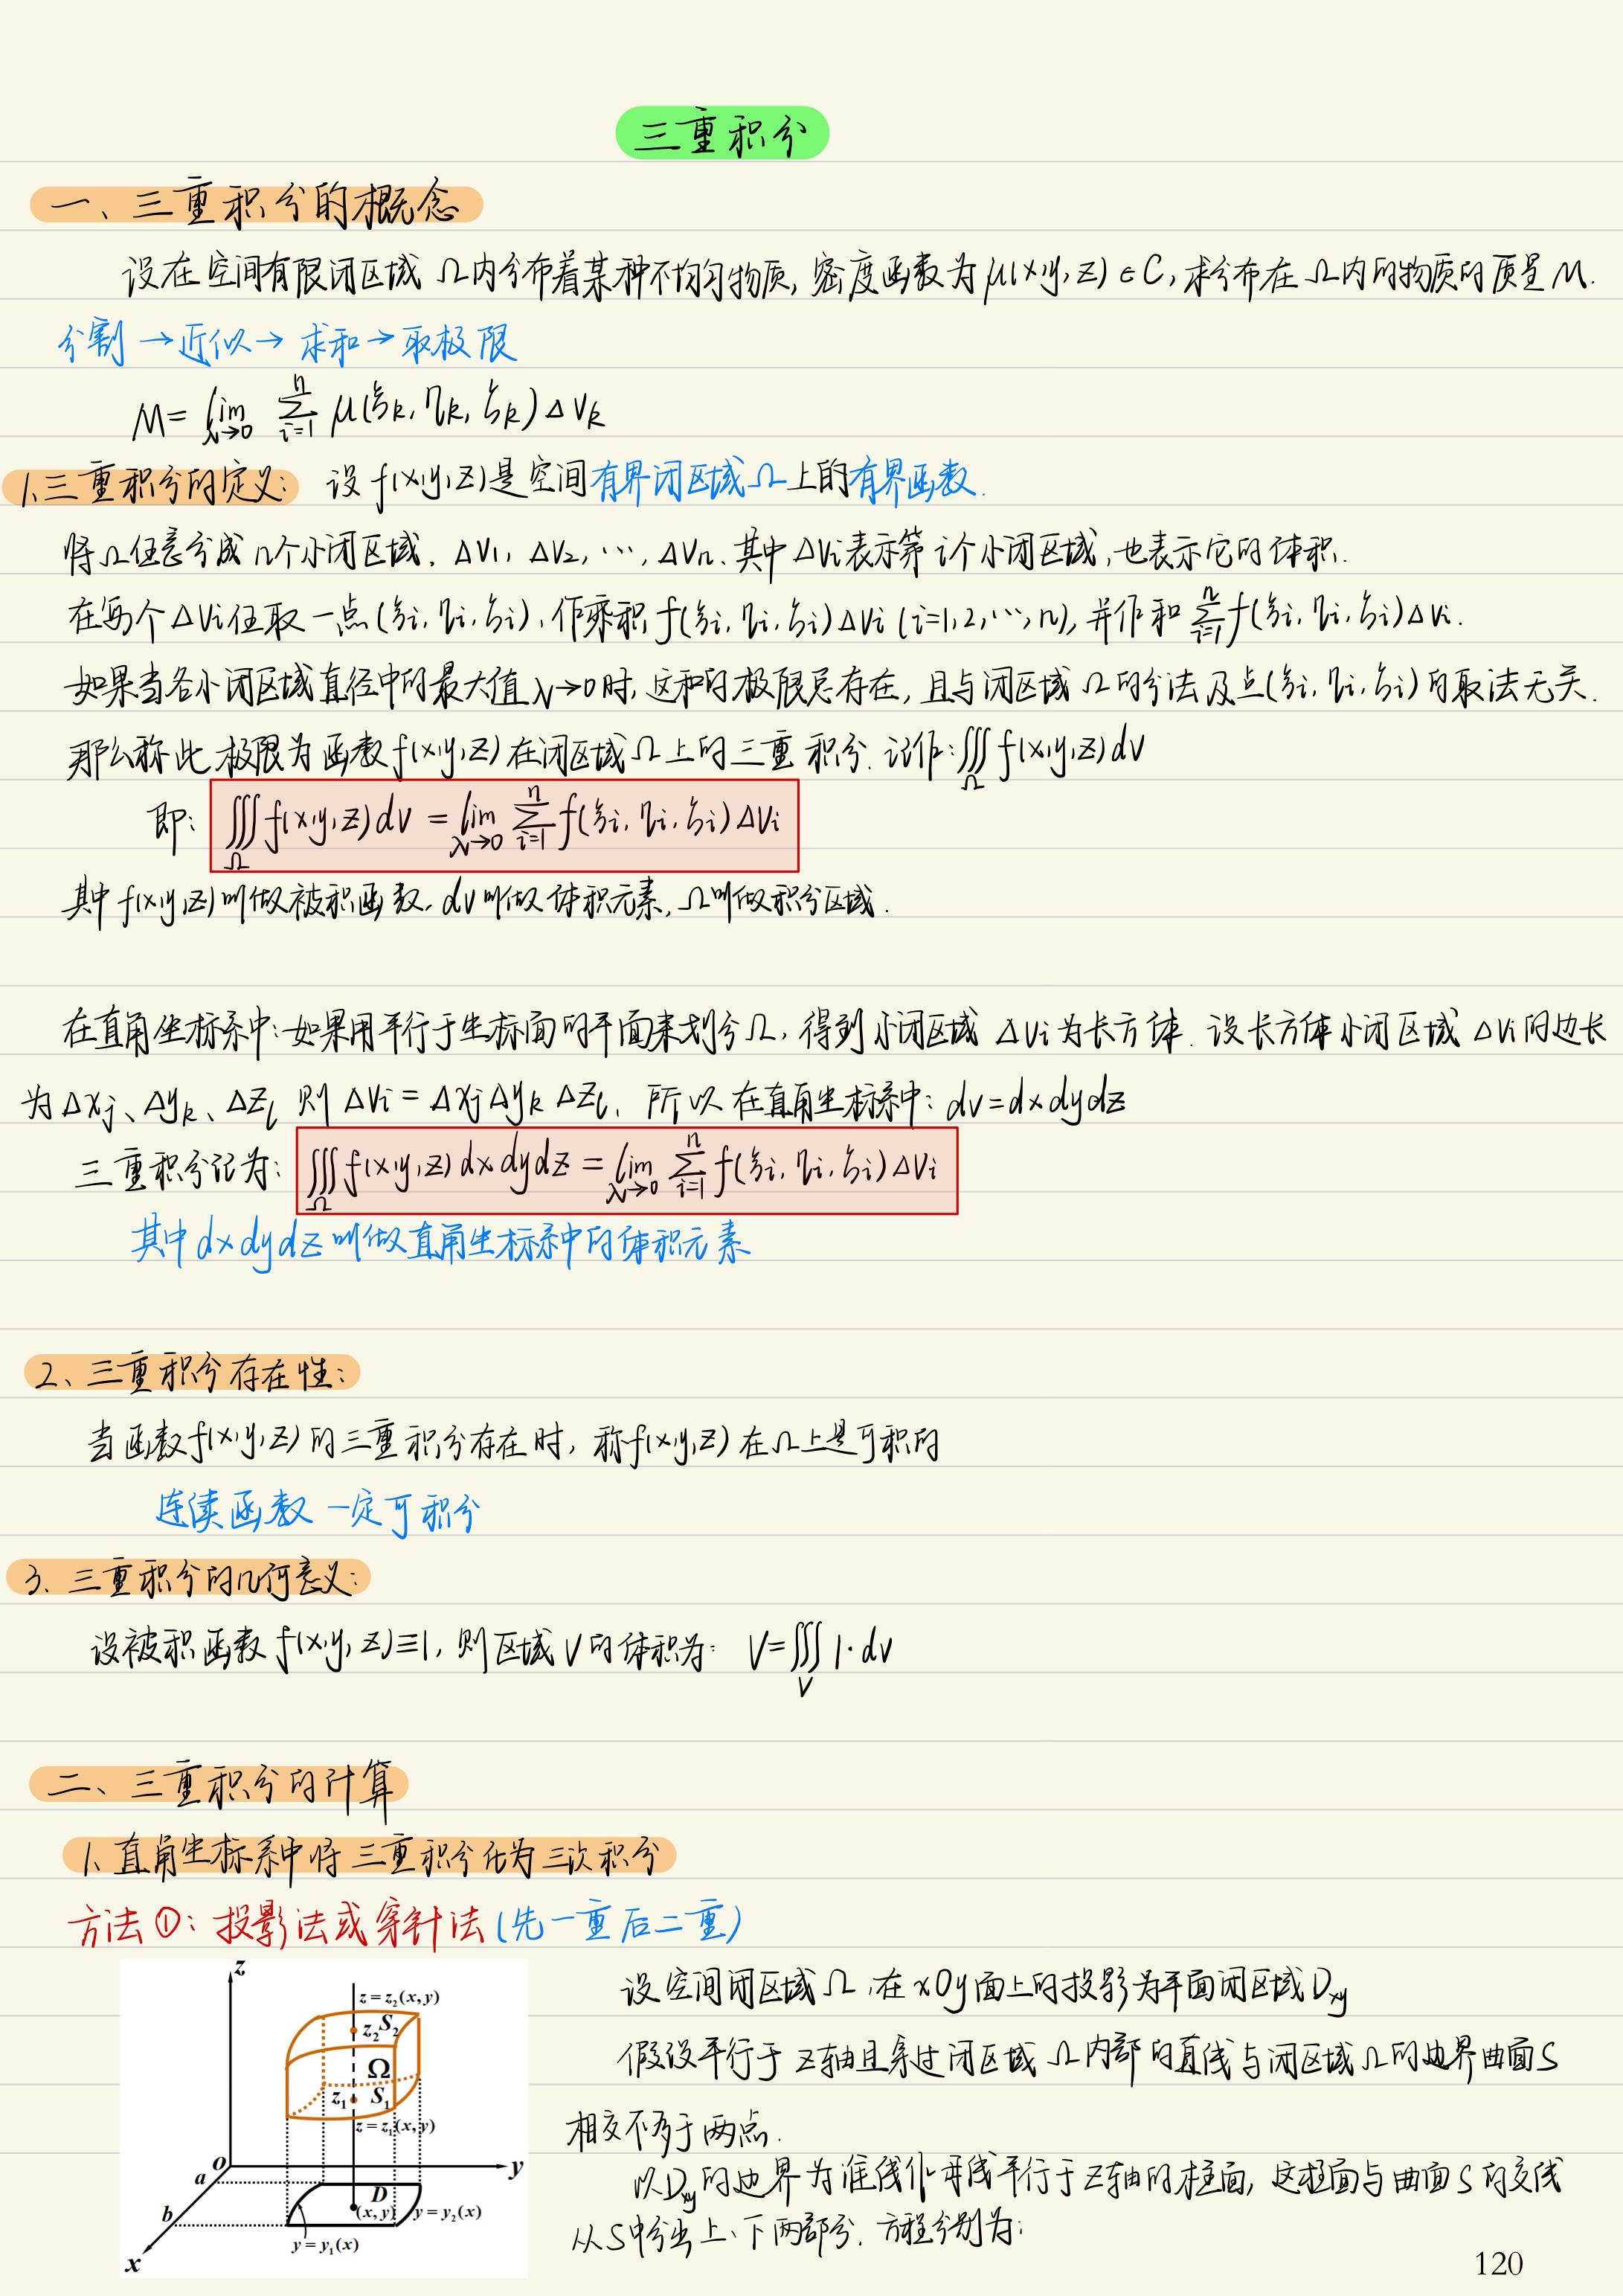 三重积分
一、三重积分的概念
设在空间有限闭区域 Ω内分布着某种不均匀物质, 密度函数为 μ(x,y,z)∈C, 求分布在Ω内的物质的质量 M.
分割→近似→求和→取极限
M= lim_{λ→0} ∑_{i=1}^{n} μ(ξk, ηk, ζk) ΔVk
1、三重积分的定义: 设 f(x,y,z)是空间有界闭区域Ω上的有界函数.
将Ω任意分成 n个小闭区域. ΔV1, ΔV2, …, ΔVn. 其中 ΔVi表示第 i个小闭区域,也表示它的体积.
在每个 ΔVi任取一点(ξi, ηi, ζi), 作乘积 f(ξi, ηi, ζi)ΔVi (i=1,2,…,n), 并作和 ∑_{i=1}^{n} f(ξi, ηi, ζi)ΔVi.
如果当各小闭区域直径中的最大值λ→0时, 这和的极限总存在, 且与闭区域Ω的分法及点(ξi, ηi, ζi)的取法无关.
那么称此极限为函数f(x,y,z)在闭区域Ω上的三重积分. 记作: ∭_Ω f(x,y,z)dv
即: ∭_Ω f(x,y,z)dv = lim_{λ→0} ∑_{i=1}^{n} f(ξi, ηi, ζi)ΔVi
其中 f(x,y,z)叫做被积函数, dv叫做体积元素, Ω叫做积分区域.
在直角坐标系中:如果用平行于坐标面的平面来划分Ω, 得到小闭区域 ΔVi为长方体. 设长方体小闭区域 ΔVi的边长
为Δxj、Δyk、Δzl 则 ΔVi = Δxj Δyk Δzl, 所以在直角坐标系中: dv=dxdydz
三重积分记为: ∭_Ω f(x,y,z)dxdydz = lim_{λ→0} ∑_{i=1}^{n} f(ξi, ηi, ζi)ΔVi
其中dxdydz叫做直角坐标系中的体积元素
2、三重积分存在性:
当函数f(x,y,z)的三重积分存在时, 称f(x,y,z)在Ω上是可积的
连续函数一定可积分
3、三重积分的几何意义:
设被积函数 f(x,y,z)≡1, 则区域V的体积为: V=∭_V 1·dv
二、三重积分的计算
1、直角坐标系中将三重积分化为三次积分
方法①: 投影法或穿针法(先一重后二重)
设空间闭区域Ω,在xOy面上的投影为平面闭区域Dxy
假设平行于z轴且穿过闭区域Ω内部的直线与闭区域Ω的边界曲面S
相交不多于两点.
以Dxy的边界为准线作母线平行于z轴的柱面, 这柱面与曲面S的交线
从S中分出上、下两部分, 方程分别为:
z
z=z2(x,y)
z2 S2
Ω
z1 S1
z=z1(x,y)
o
y
a
D
b
(x,y)
y=y2(x)
y=y1(x)
x
120